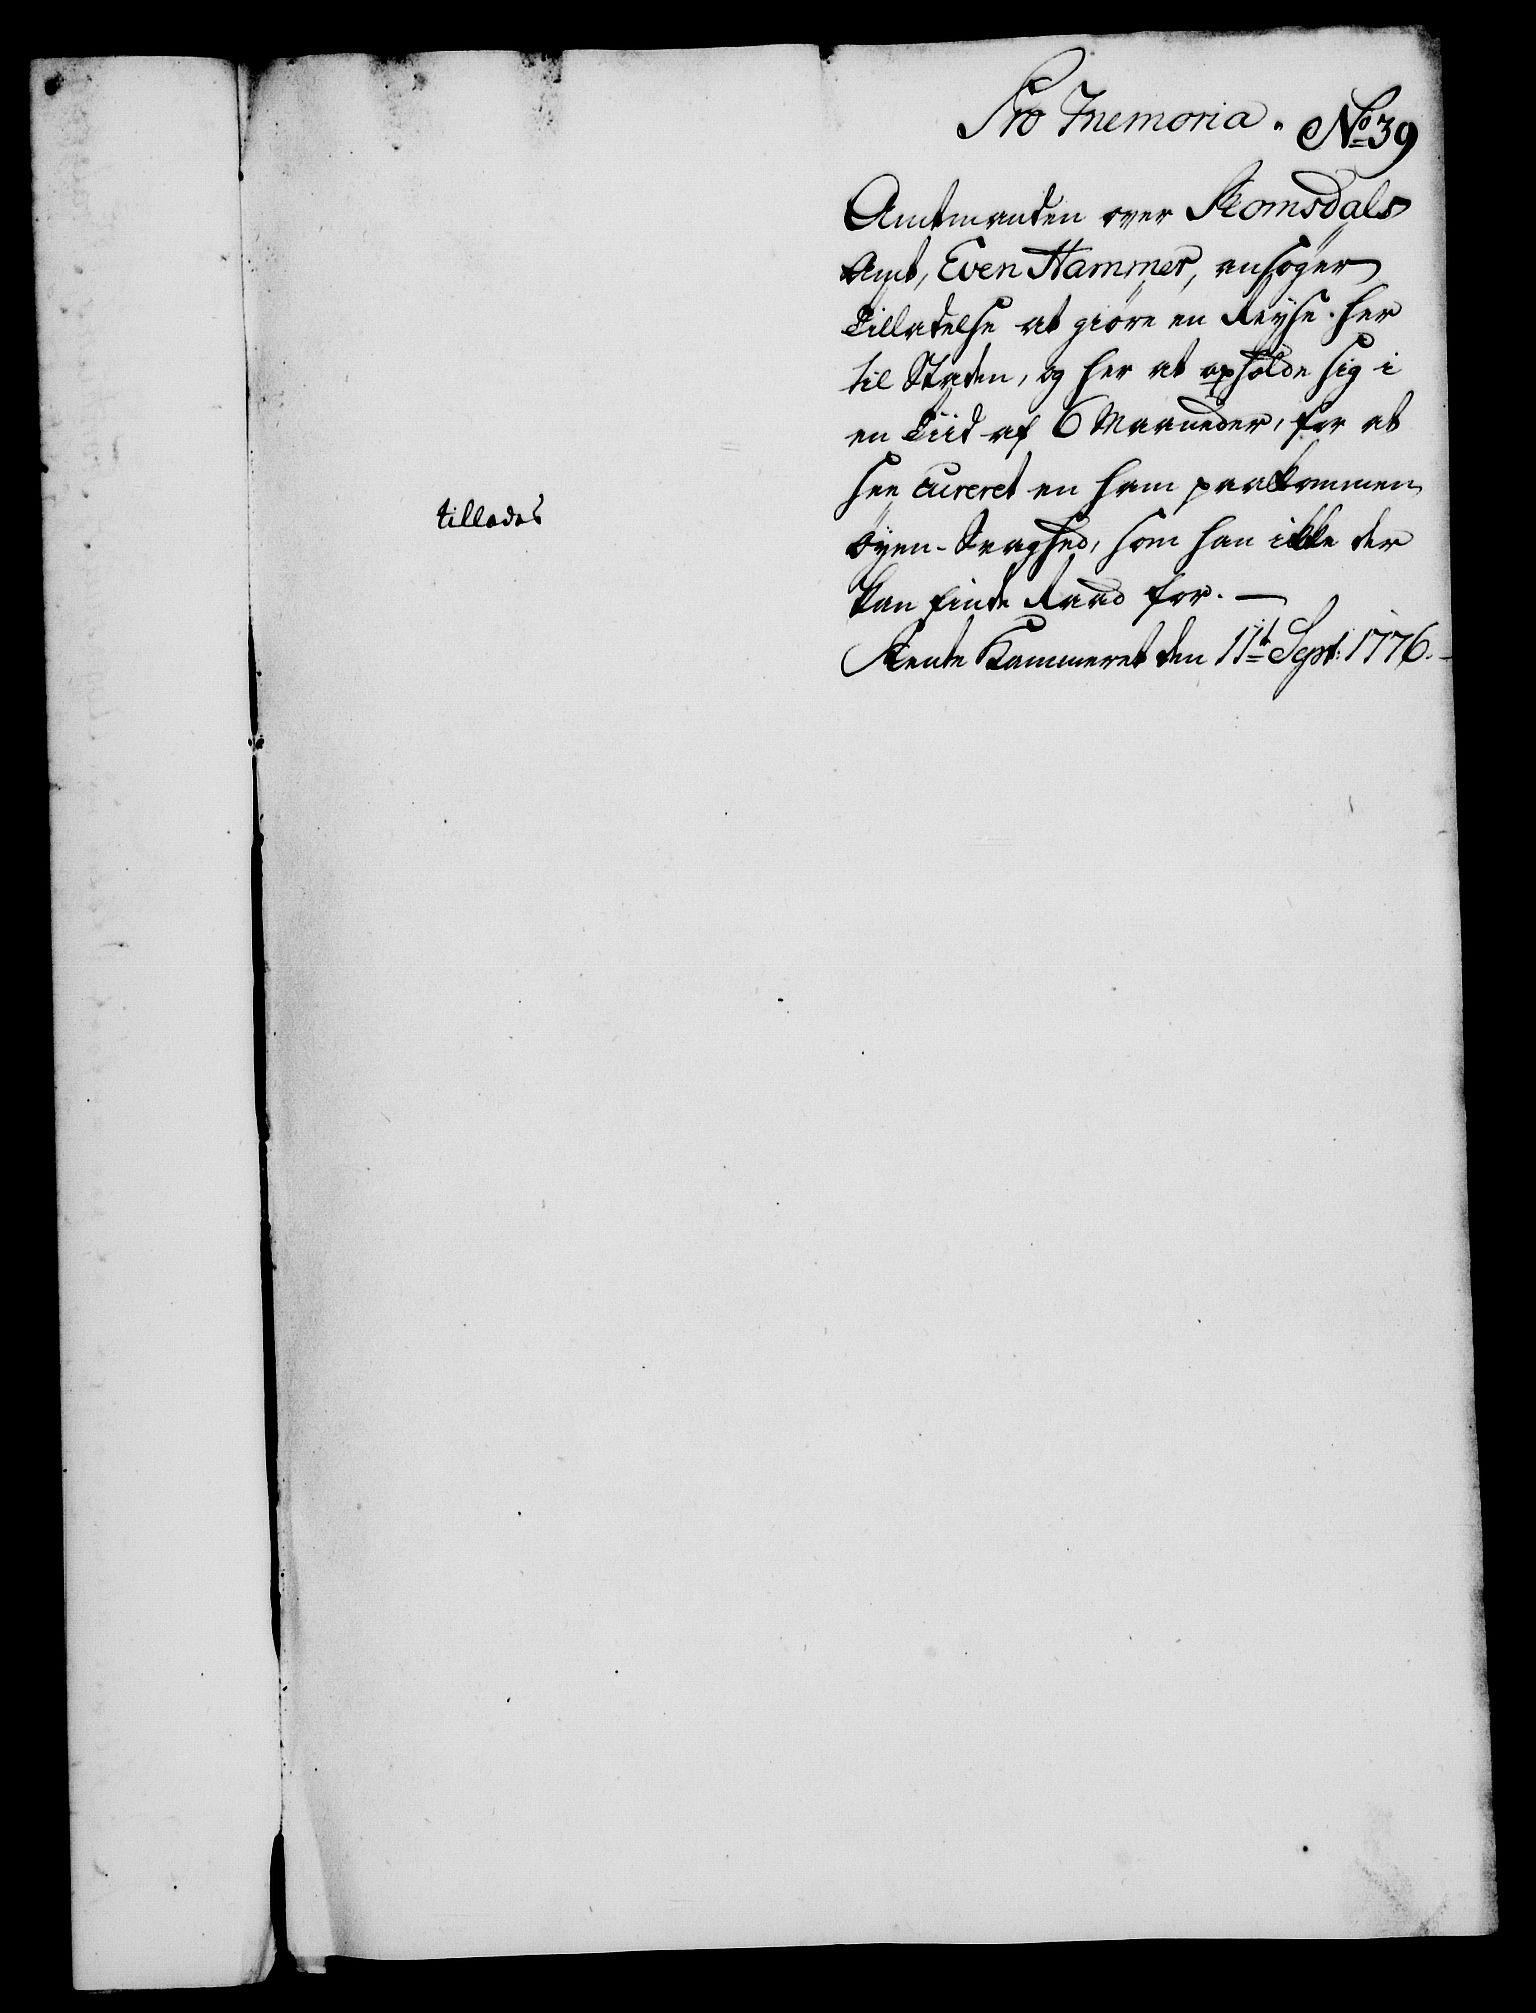 Pro Memoria. No 39
Amtmanden over Romsdals
Amt, Even Hammer, ansøger
Tilladelse at giøre en Reyse her
til Staden, og her at opholde sig i
en Tiid af 6 Maaneder, for at
see cureret en ham paakommen
øyen-Svaghed, som han ikke der
kan finde Raad for. —
Rente Kammeret den 11t Sept: 1776. -
tillades